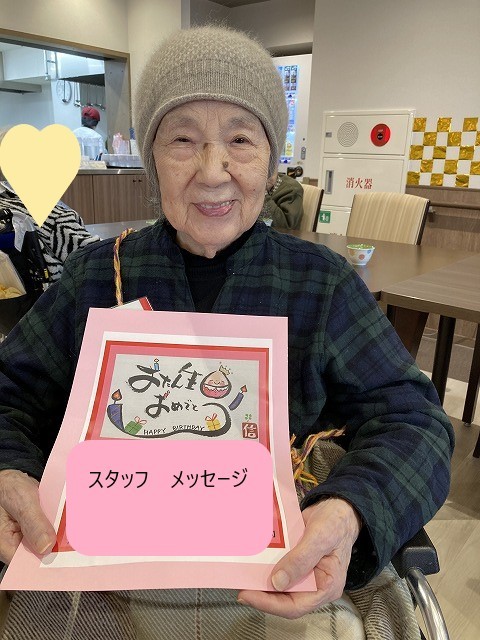 消火器
おたん生
おめでと
HAPPY BIRTHDAY
スタッフ　メッセージ